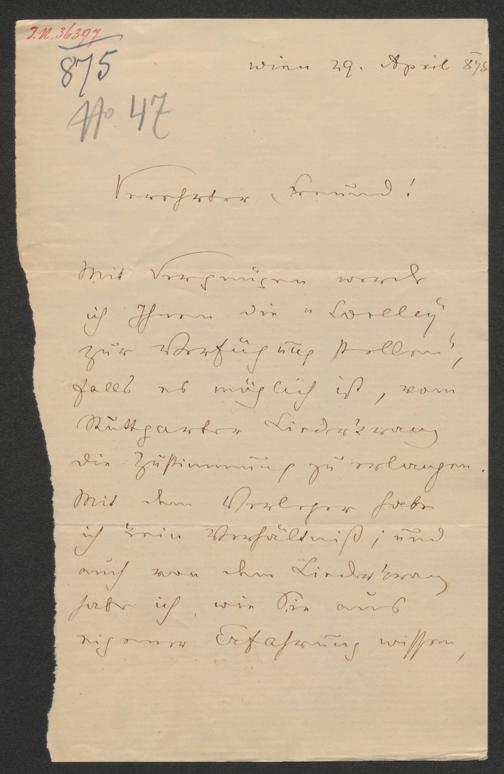 I.N. 36397
875
No 47
Wien 29. April 875
Verehrter Freund!
Mit Vergnügen werde
ich Ihnen die "Loreley"
zur Verfügung stellen,
falls es möglich ist, vom
Stuttgarter Liederkranz
die Zustimmung zu erlangen.
Mit dem Verleger habe
ich kein Verhältniß; und
auch von dem Liederkranz
habe ich, wie Sie aus
eigener Erfahrung wissen,